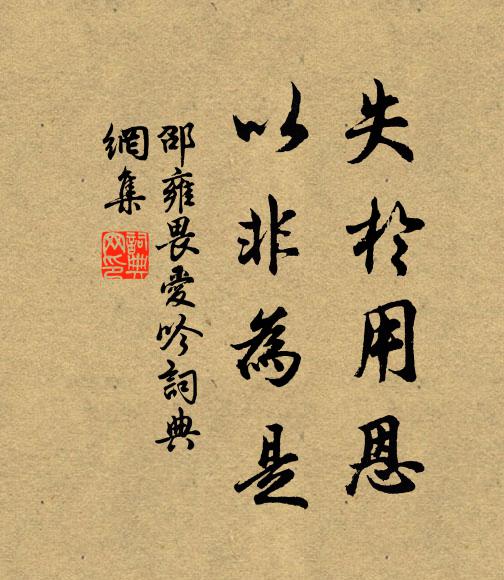 失於用恩
以非為是
邵雍畏愛吟詞典
網集
詞典
网印